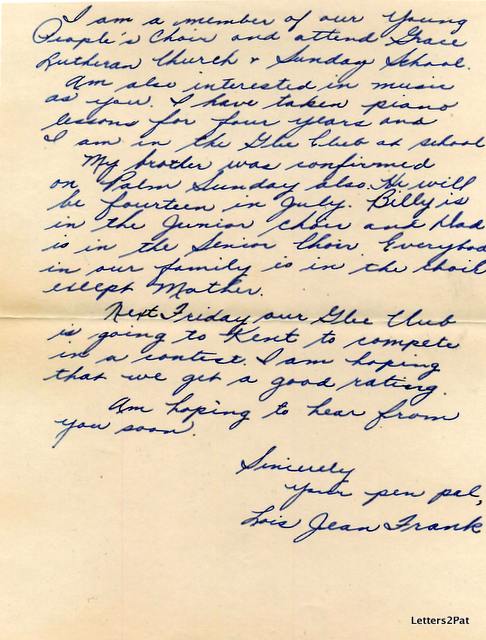 I am a member of our Young
People's Choir and attend Grace
Lutheran Church + Sunday School.
Am also interested in music
as you. I have taken piano
lessons for four years and
I am in the Glee Club at school
My brother was confirmed
on Palm Sunday also. He will
be fourteen in July. Billy is
in the Junior choir and Dad
is in the Senior Choir. Everybod
in our family is in the choir
except Mother.
Next Friday our Glee Club
is going to Kent to compete
in a contest. I am hoping
that we get a good rating.
Am hoping to hear from
you soon.
Sincerely
your pen pal,
Lois Jean Frank
Letters2Pat